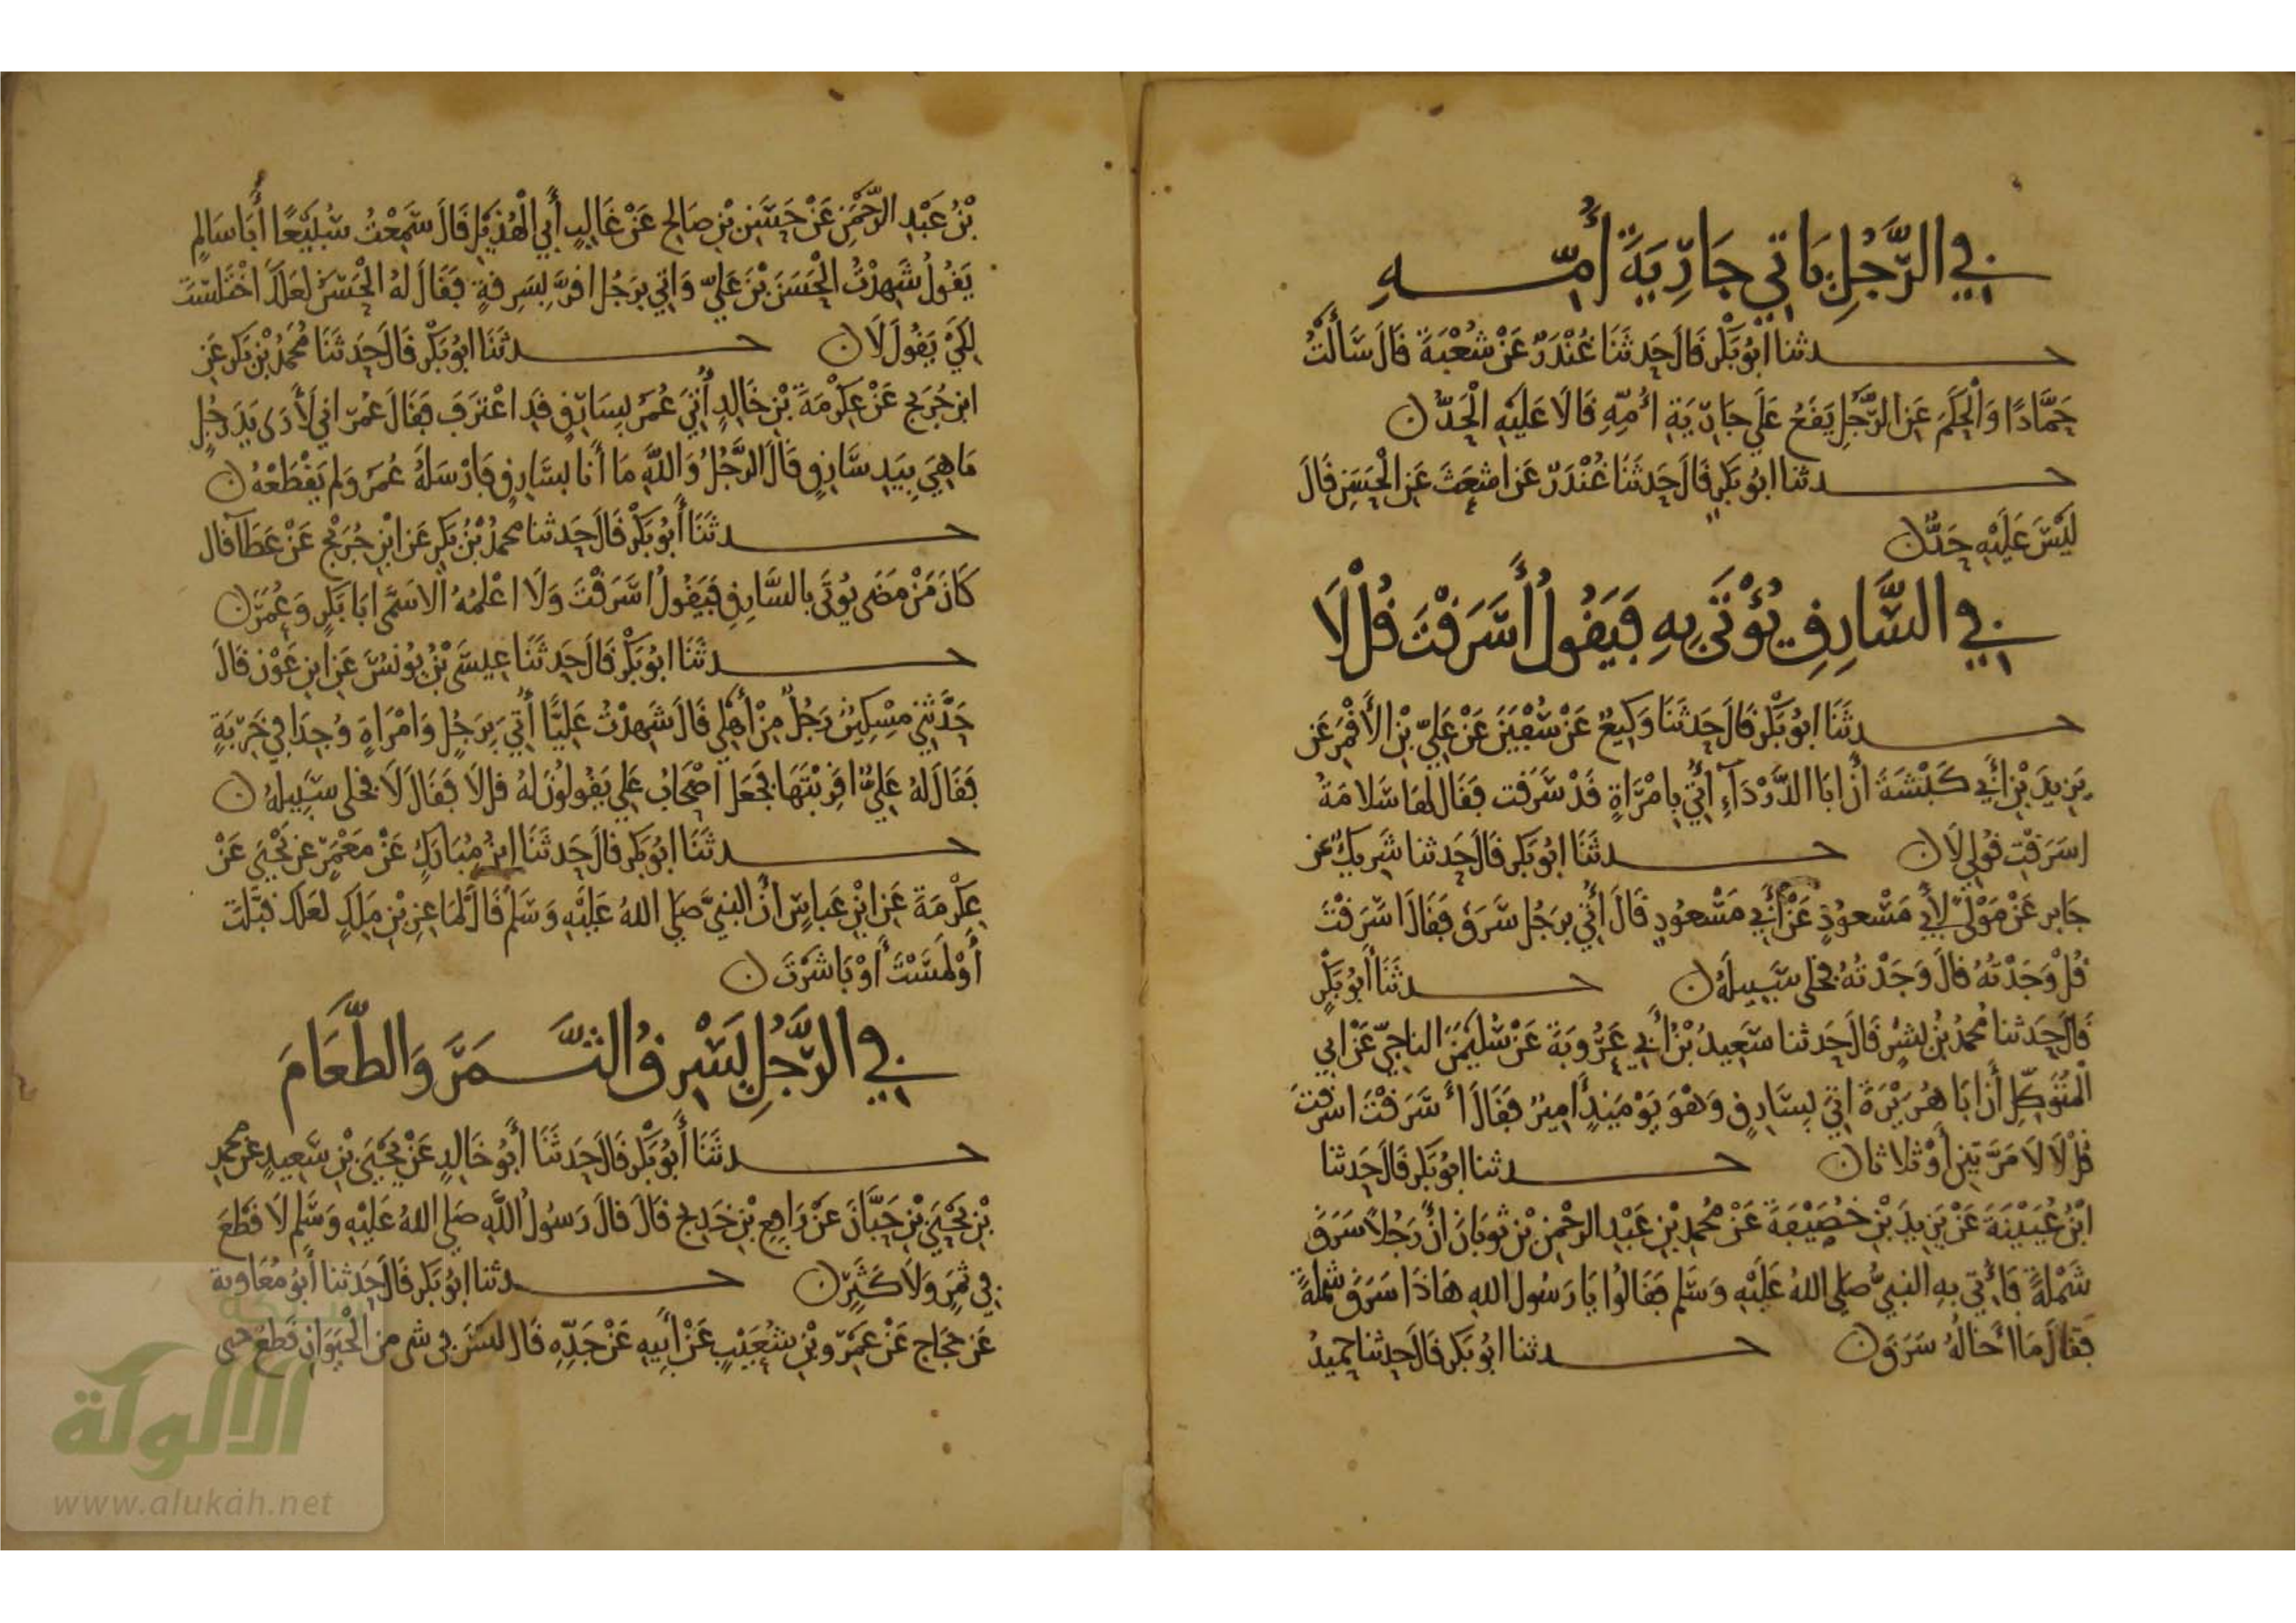 في الرَّجُلِ يَاتي جَارِيَةَ أُمِّهِ
حدثنا ابُو بَكْرٍ قَالَ حَدثَنَا غُنْدَرٌ عَنْ شُعْبَةَ قَالَ سَأَلْتُ
حَمَّادًا وَالْحَكَمَ عَنِ الرَّجُلِ يَقَعُ عَلَى جَارِيَةِ اُمِّهِ قَالَا عَلَيْهِ الْحَدُّ
حدثنا ابُو بَكرٍ قَالَ حَدثَنَا غُنْدَرٌ عَن اشعَثَ عَنِ الْحَسَنِ قَالَ
لَيْسَ عَلَيْهِ حَدٌّ
في السَّارِقِ يُؤْتَى بِهِ فَيَقُولُ أَسَرَقْتَ قُلْ لَا
حدثَنَا ابُو بَكْرٍ قَالَ حَدثَنَا وَكِيعٌ عَنْ سُفْيَنَ عَنْ عَلِيِّ بْنِ الأَقْمَرِ عَن
يَزِيدَ بْنِ أَبِي كَبْشَةَ أَنَّ ابَا الدَّرْدَآءِ أُتِيَ بِامْرَأةٍ قَدْ سَرَقت فَقَالَ لَهَا سَلامَةُ
اسَرَقْتِ قُولِي لَا حدثَنَا ابُو بَكرٍ قَالَ حَدثنا شَرِيكٌ عن
جَابر عَنْ مَوْلًى لأَبِي مَسْعودٍ عَنْ أَبِي مَسْعُودٍ قَالَ أُتِيَ بِرَجُلٍ سَرَقَ فَقَالَ اسَرَقْتَ
قُلْ وَجَدْتُهُ قَالَ وَجَدْتُهُ فخلى سَبِيلَهُ حدثَنَا أَبُو بَكْرٍ
قَالَ حَدثنا مُحمدُ بْنُ بِشْرٍ قَالَ حَدثنا سَعِيدُ بْنُ أَبِي عَرُوبَةَ عَنْ سُلَيْمَنَ الناجِيِّ عَنْ ابي
الْمُتَوَكِّلِ أَنَّ ابَا هُرَيْرَةَ اتِيَ بِسَارِقٍ وَهْوَ يَوْمَئِذٍ أَمِيرٌ فَقَالَ أَسَرَقْتَ اسَرَقْتَ
قُلْ لَا لَا مَرَّتَيْنِ أَوْ ثَلاثا حدثنا ابُو بَكرٍ قَالَ حَدثنا
ابْنُ عُيَيْنَةَ عَنْ يَزِيدَ بْنِ خُصَيْفَةَ عَنْ مُحمدِ بْنِ عَبْدِ الرحْمنِ بْنِ ثَوبَانَ انَّ رَجُلاً سَرَقَ
شَمْلَةً فَأُتِيَ بِهِ النبِيُّ صَلى اللهُ عَلَيْهِ وَسَلَّم فَقَالُوا يَا رَسُول اللهِ هَاذَا سَرَقَ شملةً
فَقَالَ مَا أَخَالُهُ سَرَقَ حدثنا ابُو بَكرٍ قَالَ حَدثنا حُميدُ
بْنُ عَبْدِ الرَّحْمَنِ عَنْ حَسَنِ بْنِ صَالحٍ عَنْ غَالِبٍ أَبِي الْهُذَيْلِ قَالَ سَمِعْتُ سُبَيْعًا أَبَا سَالِمٍ
يَقُولُ شَهِدْتُ الْحَسَنَ بْنَ عَلِيٍّ وَاتِي بِرَجُل اقرَّ بِسَرِقَةٍ فَقَالَ لَهُ الْحَسَنُ لَعَلَّكَ اخْتَلَسْتَ
لِكَيْ يَقُولَ لَا حدثَنَا ابُو بَكْرٍ قَالَ حَدثَنَا مُحَمدُ بْنُ بَكرٍ عَنِ
ابن جُرَيج عَنْ عِكْرِمَةَ بْنِ خَالِدٍ أُتِيَ عُمَرُ بِسَارِقٍ قَدِ اعْتَرَفَ فَقَالَ عُمَرُ اني لَأَرَى يَدَ رَجُلٍ
مَا هِيَ بِيَدِ سَّارِقٍ قَالَ الرَّجُلُ وَاللَّهِ مَا أَنا بِسَارِقٍ فَارْسَلَهُ عُمَرُ وَلم يَقْطَعْهُ
حدثَنَا أَبُو بَكْرٍ قَالَ حَدثنا محمدُ بْنُ بَكرٍ عَن ابْنِ جُرَيْجٍ عَنْ عَطَآ قال
كَانَ مَنْ مَضَى يُوتَى بالسَّارِقِ فَيَقُولُ اسَرَقْتَ وَلَا اعْلَمُهُ الا سَمَّى ابَا بَكرٍ وَعُمَرَ
حدثَنَا ابُو بَكْرٍ قَالَ حَدثَنَا عِيسَى بْنُ يُونُسَ عَنِ ابنِ عَوْنٍ قَالَ
حَدَّثَنِي مِسْكِينٌ رَجُلٌ مِنْ أَهلِي قَالَ شَهِدْتُ عَلِيًّا أُتِيَ بِرَجُلٍ وَامْرَاةٍ وُجِدَا فِي خَرِبَةٍ
فَقَالَ لَهُ عَلِيٌّ اقَرِبْتَهَا فجَعَلَ اصْحَابُ عَلي يَقُولُونَ لَهُ قُل لَا فَقَالَ لَا فخلى سَبِيلهُ
حدثَنَا ابُو بَكر قَالَ حَدثَنَا ابنُ مُبَارَكٍ عَنْ مَعْمَرٍ عن يَحْيَى عَنْ
عِكْرِمَةَ عَنِ ابْنِ عَباسٍ انَّ النبِيَّ صَلى اللهُ عَلَيْهِ وَسَلم قَالَ لمَاعِزِ بْنِ مَلِكٍ لَعَلكَ قبَّلْتَ
أَوْ لَمَسْتَ أَوْ بَاشَرْتَ
في الرَّجُلِ يَسْرِقُ الثَّمَرَ وَالطَّعَامَ
حدثَنَا أَبُو بَكْرٍ قَالَ حَدثَنَا أَبُو خَالِدٍ عَنْ يَحْيَى بْنِ سَعِيدٍ عَن مُحمدِ
بْنِ يَحْيَى بْنِ حَبَّانَ عَنْ رَافِعِ بْنِ خَدِيجٍ قَالَ قَالَ رَسُولُ اللَّهِ صَلي اللهُ عَلَيْهِ وَسَلَّم لَا قَطْعَ
فِي ثَمَرٍ وَلَا كَثَرٍ حدثنا ابُو بَكرٍ قَالَ حَدثنا أَبُو مُعَاوية
عَن حَجاجٍ عَنْ عَمْرِو بْنِ شُعَيْبٍ عَنْ أَبِيهِ عَنْ جَدِّهِ قَالَ ليْسَ في شي من الْحَيَوَانِ قَطْعٌ حتى
الألوكة
www.alukah.net